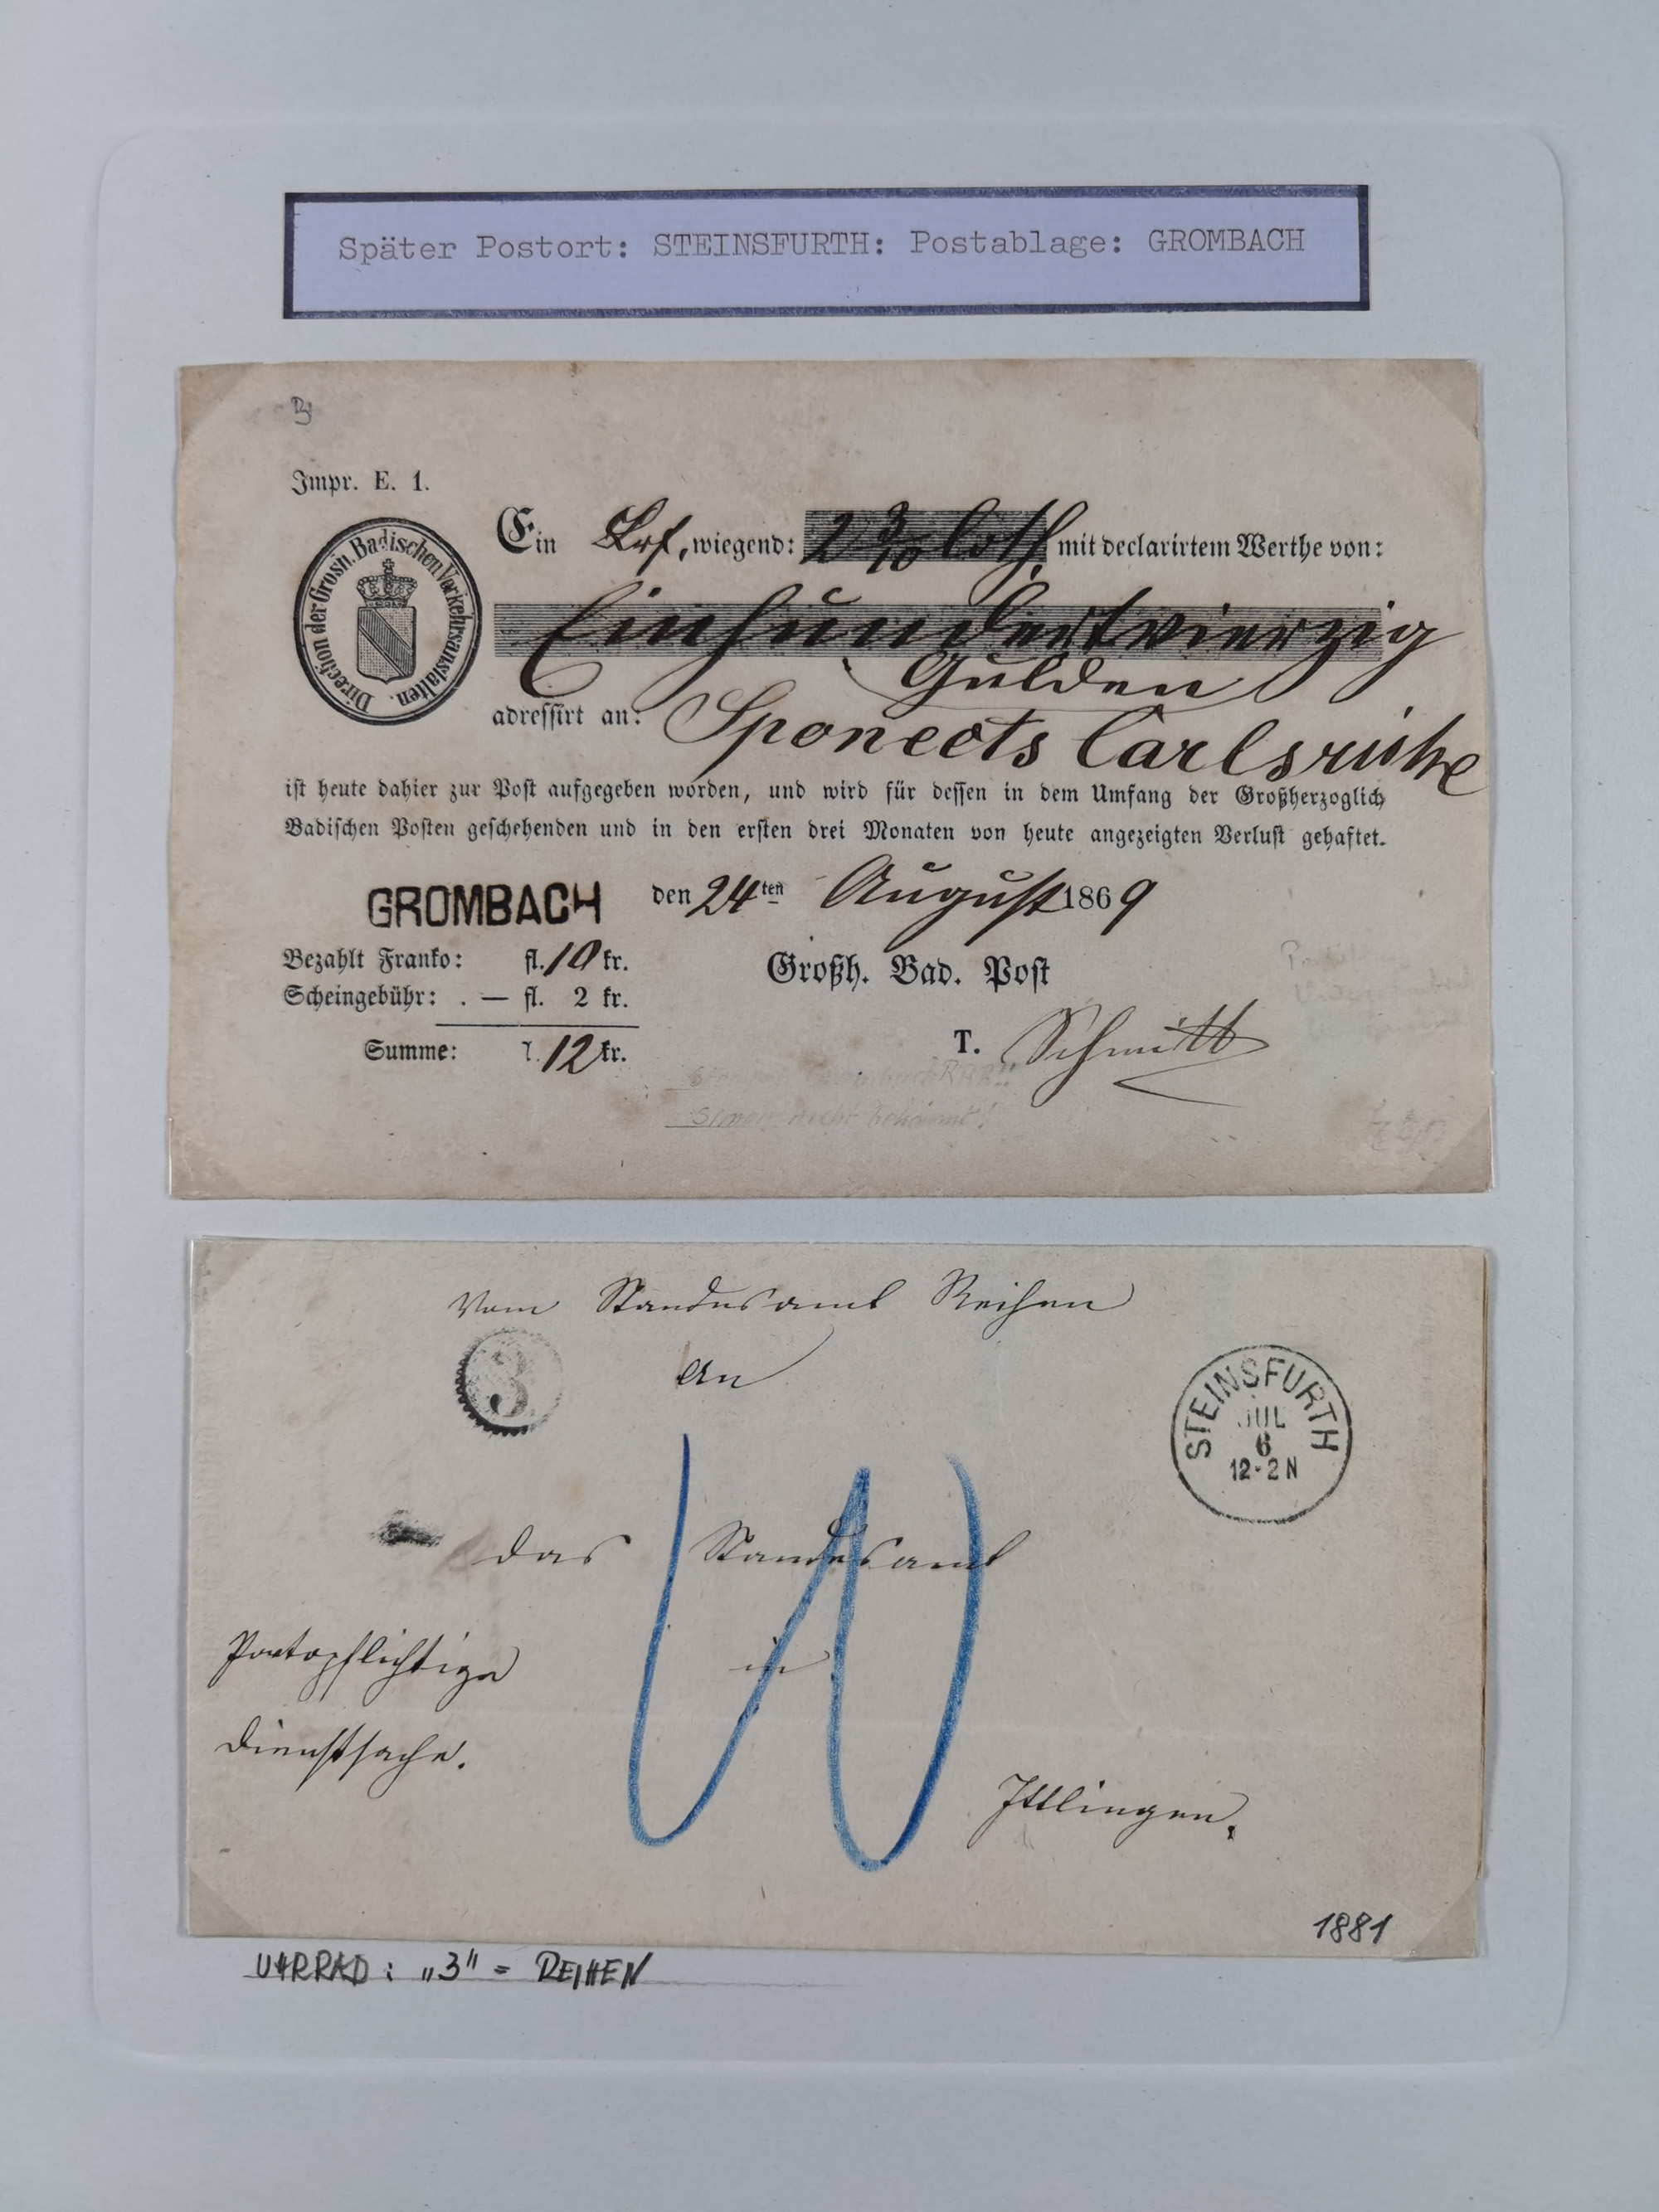 Später Postort: STEINSFURTH: Postablage: GROMBACH
Impr. E. 1.
Direction der Grosh. Badischen Verkehrsanstalten.
Ein Brf, wiegend: 2 3/10 Loth. mit declarirtem Werthe von:
Einhundertvierzig
Gulden
adressirt an: Carlsruhe
ist heute dahier zur Post aufgegeben worden, und wird für dessen in dem Umfang der Großherzoglich
Badischen Posten geschehenden und in den ersten drei Monaten von heute angezeigten Verlust gehaftet.
GROMBACH den 24ten August 1869
Bezahlt Franko: fl. 10 kr.
Großh. Bad. Post
Scheingebühr: . — fl. 2 kr.
Summe: 12 kr.
T. Schmitt
Stempel Grombach RRR!!
Simon nicht bekannt!
Vom Standesamt Reihen
3
an
STEINSFURTH
JUL
6
12-2N
das Standesamt
Portopflichtige
in
Dienstsache.
Ittlingen.
1881
UHRRAD: „3" = REIHEN